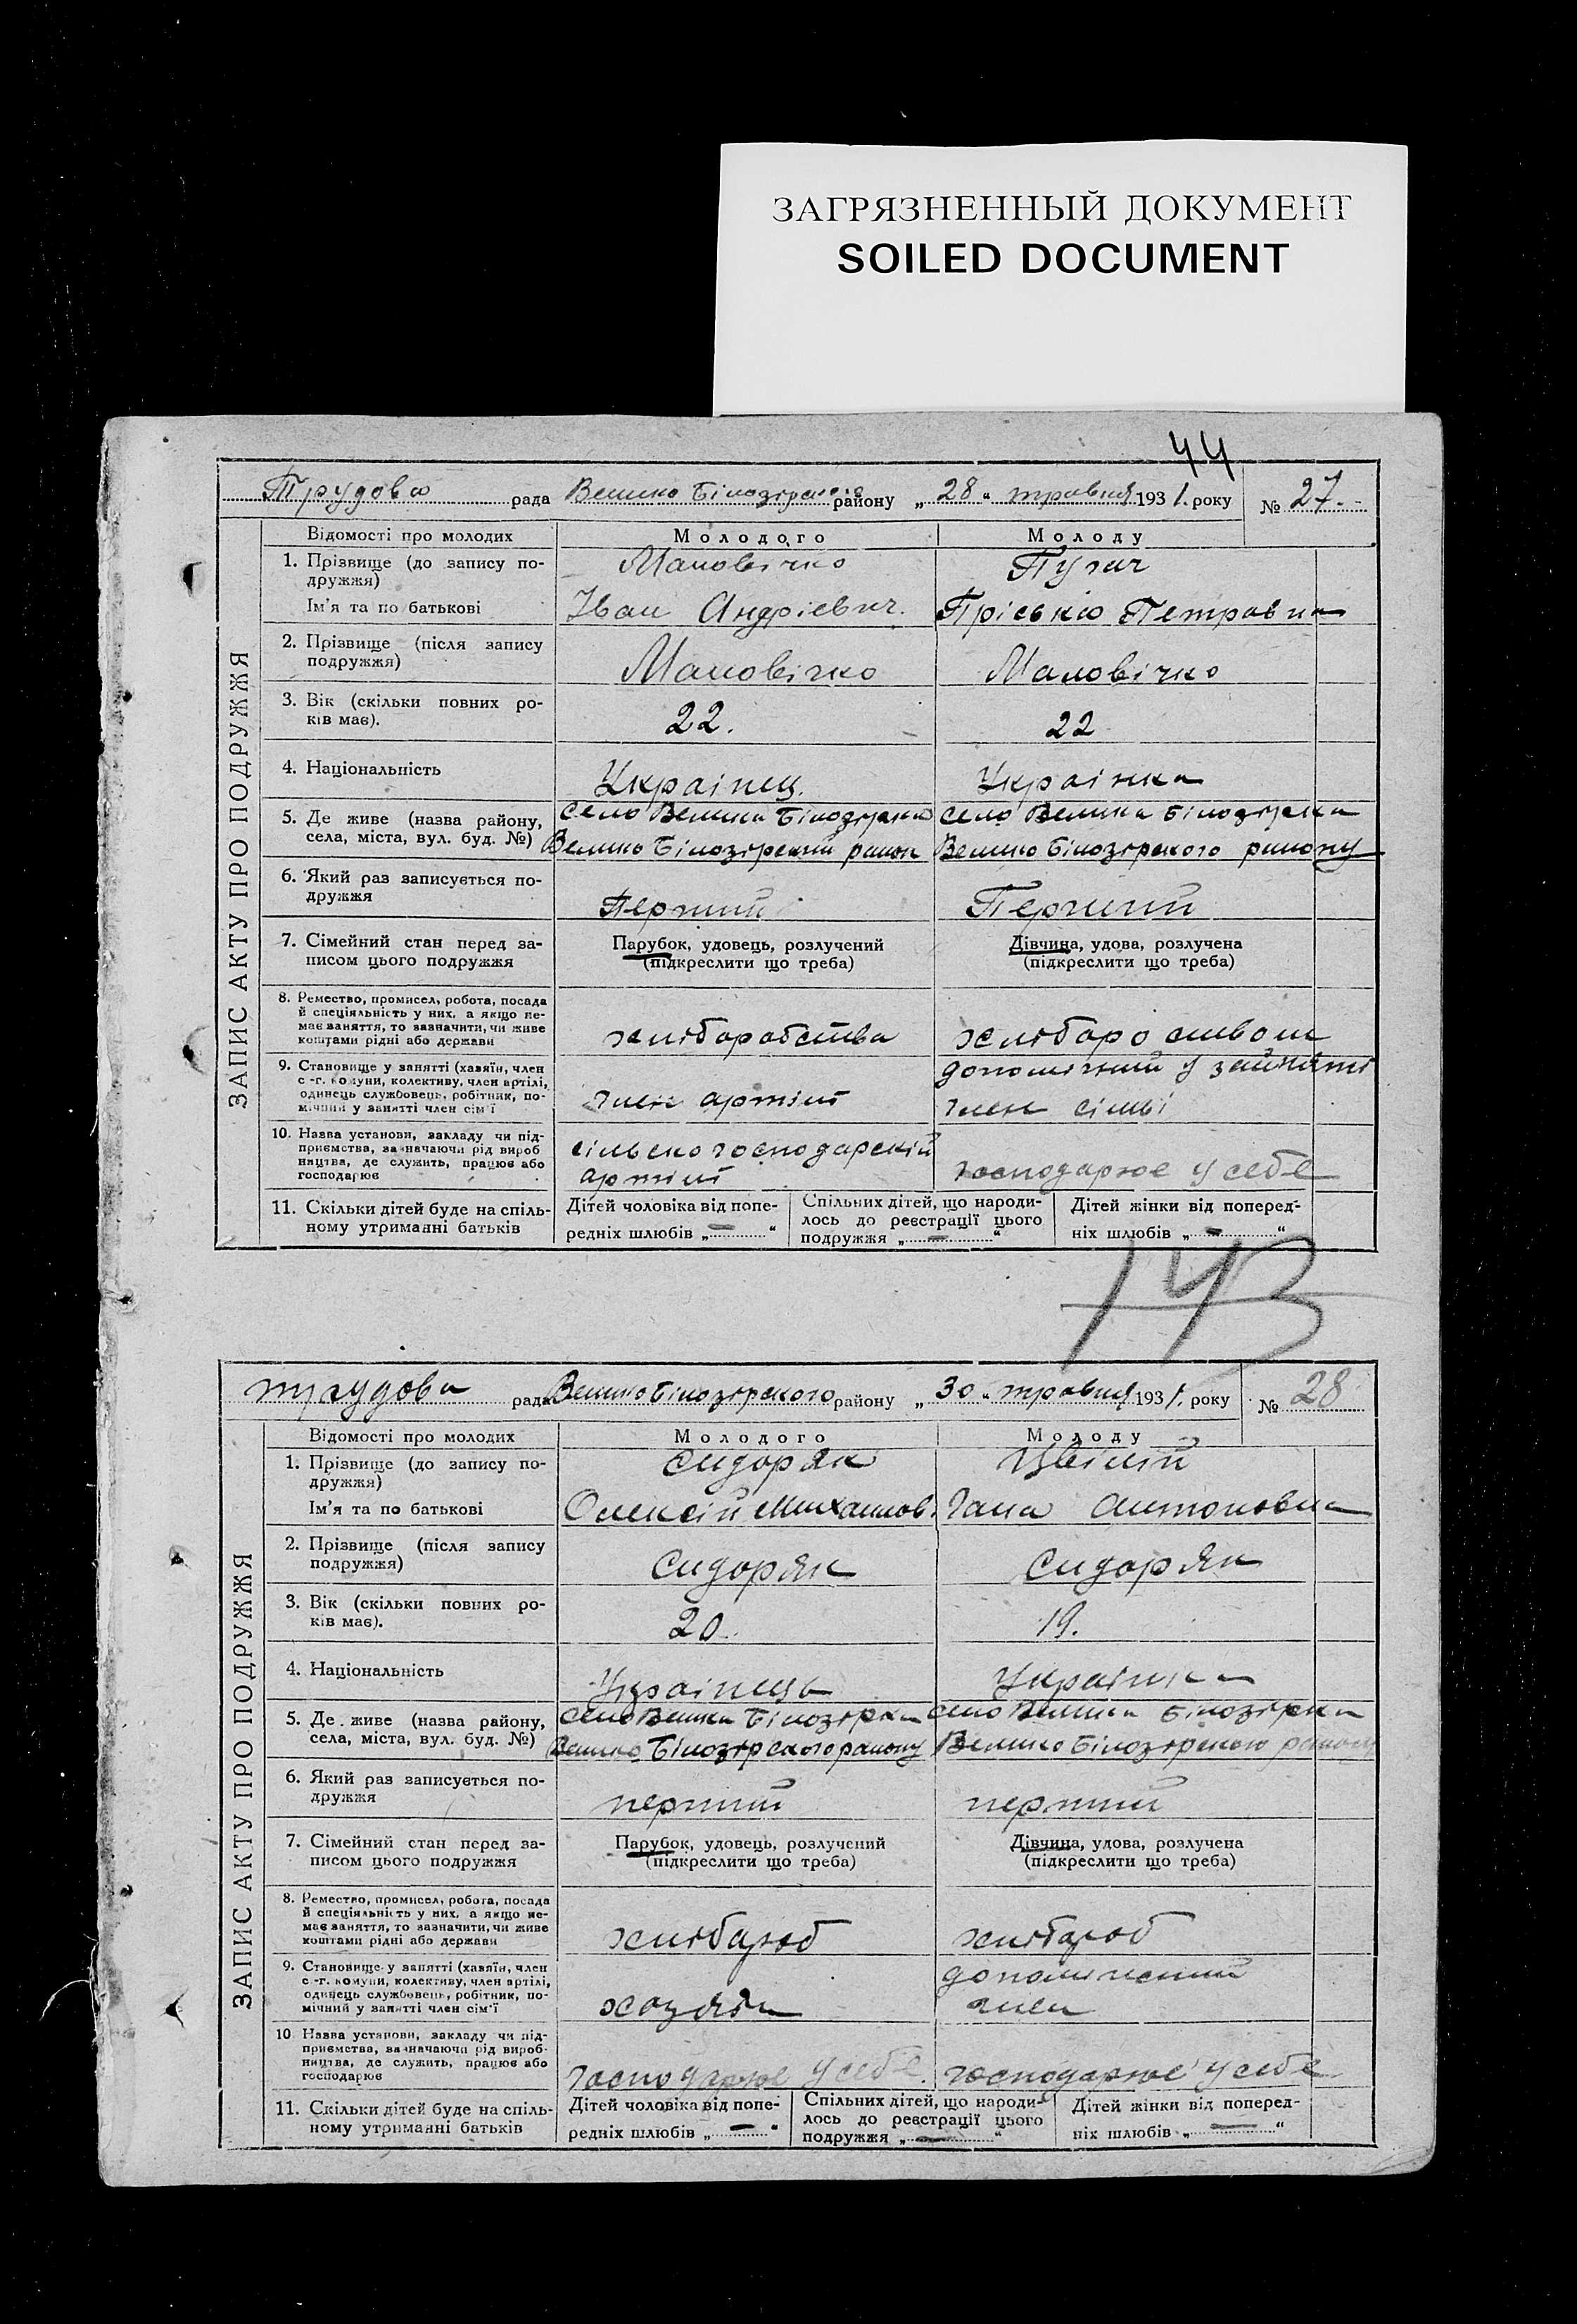 ЗАГРЯЗНЕННЫЙ ДОКУМЕНТ
SOILED DOCUMENT
44
Трудова рада Велико Білозірского району „28“ травня 1931. року № 27.
ЗАПИС АКТУ ПРО ПОДРУЖЖЯ
Відомості про молодих Молодого Молоду
1. Прізвище (до запису по-
дружжя) Маловічко Пугач
Ім'я та по батькові Іван Андрієвич. Пріська Петровна
2. Прізвище (після запису
подружжя) Маловічко Маловічко
3. Вік (скільки повних ро-
ків має). 22. 22
4. Національність Українец. Українка
5. Де живе (назва району, село Велика Білозірка село Велика Білозірка
села, міста, вул. буд. №) Велико Білозірский район Велико Білозірского району
6. Який раз записується по-
дружжя Перший Перший
7. Сімейний стан перед за- Парубок, удовець, розлучений Дівчина, удова, розлучена
писом цього подружжя (підкреслити що треба) (підкреслити що треба)
8. Ремество, промисел, робота, посада
й спеціяльність у них, а якщо не-
має заняття, то зазначити, чи живе
коштами рідні або держави хліборобства
9. Становище у занятті (хазяїн, член
с.-г. комуни, колективу, член артілі,
одинець службовець, робітник, по-
мічний у занятті член сім'ї член артілі член сімьі
10. Назва установи, закладу чи під-
приємства, зазначаючи рід вироб
ництва, де служить, працює або
господарює сільско господарскій артілі господарює у себе
11. Скільки дітей буде на спіль- Дітей чоловіка від попе- Спільних дітей, що народи- Дітей жінки від поперед-
ному утриманні батьків редніх шлюбів „—“ лось до реєстрації цього подружжя „—“ ніх шлюбів „—“
143
трудова рада Велико Білозірского району „30“ травня 1931. року № 28
ЗАПИС АКТУ ПРО ПОДРУЖЖЯ
Відомості про молодих Молодого Молоду
1. Прізвище (до запису по-
дружжя) Сидоряк Цвілій
Ім'я та по батькові Олексій Михайлов. Гана Антоновна
2. Прізвище (після запису
подружжя) Сидоряк Сидоряк
3. Вік (скільки повних ро-
ків має). 20. 19.
4. Національність Українець Українка
5. Де живе (назва району, село Велика Білозірка село Велика Білозірка
села, міста, вул. буд. №) Велико Білозірского району Велико Білозірского району
6. Який раз записується по-
дружжя перший перший
7. Сімейний стан перед за- Парубок, удовець, розлучений Дівчина, удова, розлучена
писом цього подружжя (підкреслити що треба) (підкреслити що треба)
8. Ремество, промисел, робота, посада
й спеціяльність у них, а якщо не-
має заняття, то зазначити, чи живе
коштами рідні або держави хлібороб хлібороб
9. Становище у занятті (хазяїн, член
с.-г. комуни, колективу, член артілі,
одинець службовець, робітник, по-
мічний у занятті член сім'ї член
10. Назва установи, закладу чи під-
приємства, зазначаючи рід вироб-
ництва, де служить, працює або
господарює господарює у себе. господарює у себе
11. Скільки дітей буде на спіль- Дітей чоловіка від попе- Спільних дітей, що народи- Дітей жінки від поперед-
ному утриманні батьків редніх шлюбів „—“ лось до реєстрації цього подружжя „—“ ніх шлюбів „—“